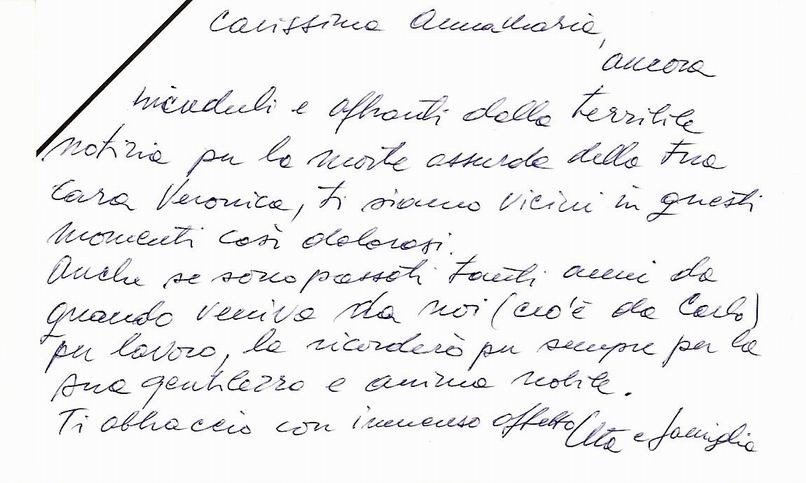 Carissima Annamaria,
ancora
increduli e affranti dalla terribile
notizia per la morte assurda della tua
cara Veronica, ti siamo vicini in questi
momenti così dolorosi.
Anche se sono passati tanti anni da
quando veniva da noi (cio'è da Carlo)
per lavoro, la ricorderò per sempre per la
sua gentilezza e anima nobile.
Ti abbraccio con immenso affetto e famiglia